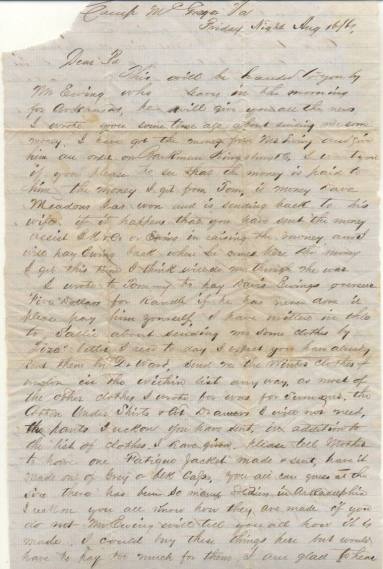 Camp McGregor Va
Friday Night Aug 16/61
Dear Pa
This will be handed to you by
Mr Ewing who leaves in the morning
for Arkansas, he will give you all the news
I wrote you some time ago about sending me some
money. I have got the money from Mr Ewing and given
him an order on I want
if you please to see that the money is paid to
him the money I got from Tom, is money Dave
Meadors has won and is sending back to his
wife. if it happens that you have sent the money
assist or in raising the money and I
will pay Ewing back when he comes here the money
I get this time I think
I wrote to Tommy to pay Davis Ewings overseer
Five Dollars for Randle if he has never done it
please pay him yourself I have written in
to Sallie about sending me some clothes by
letter I read to day I expect you have already
sent them by Dr Ward. Send me the Winter clothes I
in the within list any way, as most of
the other clothes I wrote for were for Summer, the
Cotton Under Shirts & Drawers I will not need,
the pants I reckon you have sent, in addition to
the list of clothes I have given. Please tell Mother
to have one Fatigue Jacket made & sent, have it
made out of Grey You all can guess at the
size there has been so many in Arkadelphia
I reckon you all know how they are made if you
do not Mr Ewing will tell you all how it is
made. I could buy these things here but would
have to pay too much for them. I am glad to hear